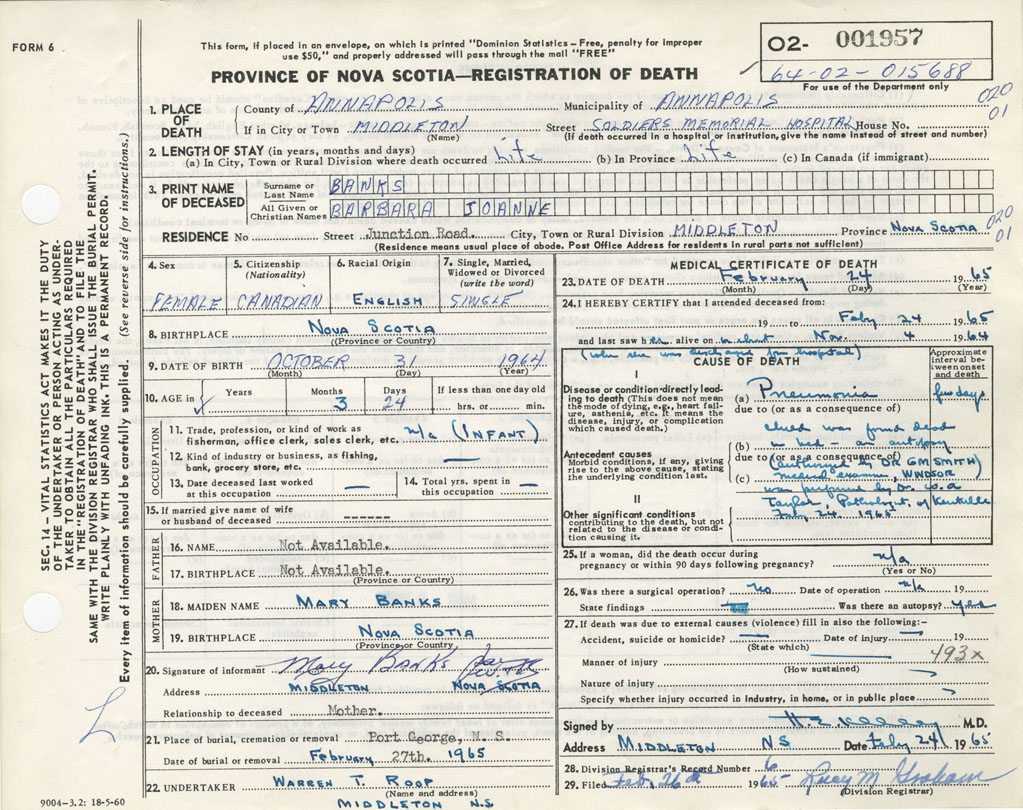 FORM 6
This form, if placed in an envelope, on which is printed "Dominion Statistics – Free, penalty for improper
use $50," and properly addressed will pass through the mail "FREE"
PROVINCE OF NOVA SCOTIA—REGISTRATION OF DEATH
O2- 001957
64-02-015688
For use of the Department only
1. PLACE OF DEATH
County of ANNAPOLIS Municipality of ANNAPOLIS 020
If in City or Town MIDDLETON Street SOLDIERS MEMORIAL HOSPITAL House No. 01
(Name) (If death occurred in a hospital or institution, give name instead of street and number)
2. LENGTH OF STAY (in years, months and days)
(a) In City, Town or Rural Division where death occurred Life (b) In Province Life (c) In Canada (if immigrant)
3. PRINT NAME OF DECEASED
Surname or Last Name BANKS
All Given or Christian Names BARBARA JOANNE
RESIDENCE No Street Junction Road. City, Town or Rural Division MIDDLETON Province NOVA SCOTIA 020 01
(Residence means usual place of abode. Post Office Address for residents in rural parts not sufficient)
4. Sex 5. Citizenship (Nationality) 6. Racial Origin 7. Single, Married, Widowed or Divorced (write the word)
FEMALE CANADIAN ENGLISH SINGLE
8. BIRTHPLACE NOVA SCOTIA
(Province or Country)
9. DATE OF BIRTH OCTOBER 31 1964
(Month) (Day) (Year)
10. AGE in Years Months 3 Days 24 If less than one day old hrs. or min.
OCCUPATION
11. Trade, profession, or kind of work as fisherman, office clerk, sales clerk, etc. n/a (INFANT)
12. Kind of industry or business, as fishing, bank, grocery store, etc. —
13. Date deceased last worked at this occupation — 14. Total yrs. spent in this occupation —
15. If married give name of wife or husband of deceased ------
FATHER
16. NAME Not Available.
17. BIRTHPLACE Not Available.
(Province or Country)
MOTHER
18. MAIDEN NAME MARY BANKS
19. BIRTHPLACE NOVA SCOTIA
(Province or Country)
20. Signature of informant Mary Banks
Address MIDDLETON NOVA SCOTIA
Relationship to deceased Mother.
21. Place of burial, cremation or removal Port George, N. S.
Date of burial or removal February 27th. 1965
22. UNDERTAKER WARREN T. ROOP
(Name and address)
MIDDLETON N.S
MEDICAL CERTIFICATE OF DEATH
23. DATE OF DEATH February 24 1965
(Month) (Day) (Year)
24. I HEREBY CERTIFY that I attended deceased from:
19 to Feby 24 1965
and last saw her alive on or about Nov. 4 1964
(when she was discharged from hospital)
CAUSE OF DEATH
Approximate interval between onset and death
I
Disease or condition directly leading to death (This does not mean the mode of dying, e.g., heart failure, asthenia, etc. It means the disease, injury, or complication which caused death.)
(a) Pneumonia few days
due to (or as a consequence of)
child was found dead
(b) in bed – an autopsy
Antecedent causes
Morbid conditions, if any, giving rise to the above cause, stating the underlying condition last.
due to (or as a consequence of)
(authorized by DR GM SMITH)
(c) medical examiner, WINDSOR
was performed by Dr. W.A.
Taylor, Pathologist, of Kentville
Feby 24. 1965
II
Other significant conditions
contributing to the death, but not related to the disease or condition causing it.
25. If a woman, did the death occur during pregnancy or within 90 days following pregnancy? n/a
(Yes or No)
26. Was there a surgical operation? no Date of operation n/a 19
State findings Was there an autopsy? yes
27. If death was due to external causes (violence) fill in also the following:-
Accident, suicide or homicide? Date of injury 19
(State which) 493x
Manner of injury
(How sustained)
Nature of injury
Specify whether injury occurred in industry, in home, or in public place
Signed by M.D.
Address MIDDLETON NS Date Feby 24 1965
28. Division Registrar's Record Number 6
29. Filed Feb. 26th 1965 Graham
(Division Registrar)
SEC. 14 — VITAL STATISTICS ACT MAKES IT THE DUTY
OF THE UNDERTAKER OR PERSON ACTING AS UNDERTAKER TO OBTAIN ALL THE PARTICULARS REQUIRED
IN THE "REGISTRATION OF DEATH" AND TO FILE THE
SAME WITH THE DIVISION REGISTRAR WHO SHALL ISSUE THE BURIAL PERMIT.
WRITE PLAINLY WITH UNFADING INK. THIS IS A PERMANENT RECORD.
Every item of information should be carefully supplied. (See reverse side for instructions.)
9004-3.2: 18-5-60